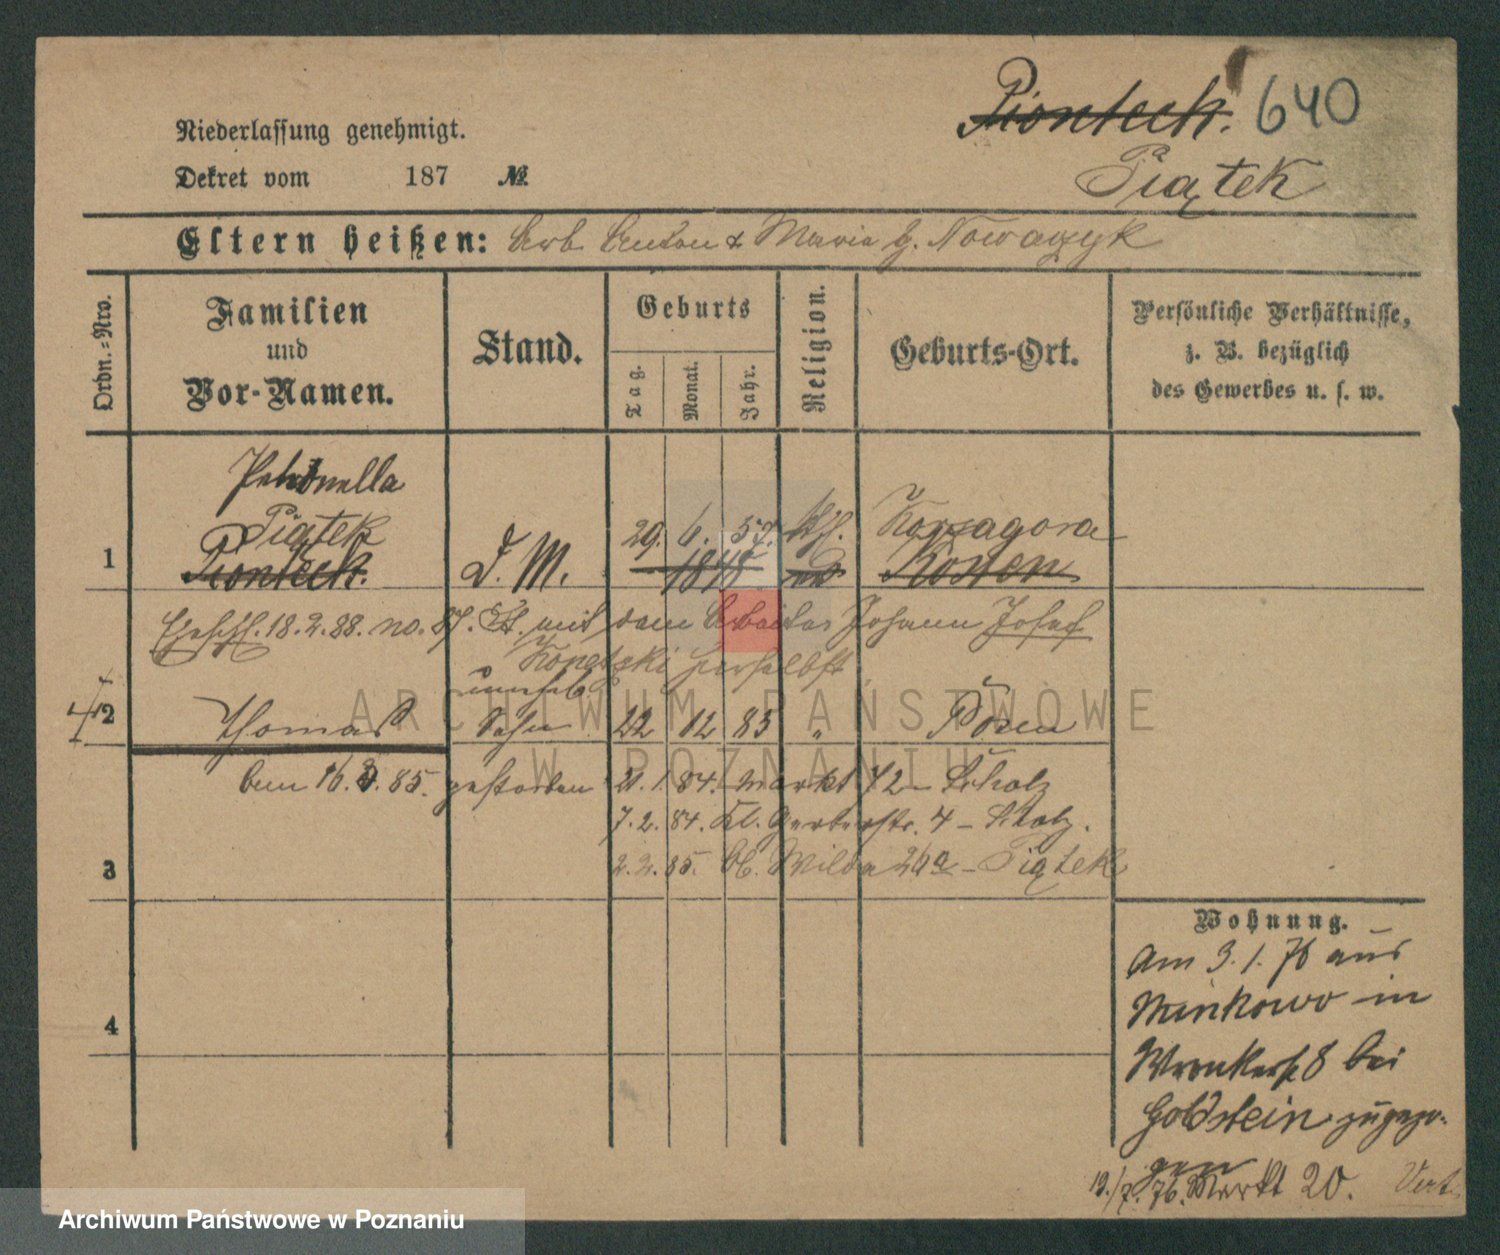 Pionteck. 640
Niederlassung genehmigt.
Dekret vom 187 №
Piątek
Eltern heißen: Arb. Anton & Maria g. Nowaczyk
Ordn.=Nro.
Familien
und
Vor-Namen.
Stand.
Geburts
Tag.
Monat.
Jahr.
Religion.
Geburts-Ort.
Persönliche Verhältnisse,
z. B. bezüglich
des Gewerbes u. s. w.
Petronella
Piątek
1 Pionteck. D. M. 29. 6. 57. kth. Korzagora
1848 Kosten
Eheschl. 18.2.88. no. 87. St. mit dem Arbeiter Johann Josef
hierselbst
unehel.
2 Thomas Sohn 22 12 83 " Posen
am 16. 3. 85. gestorben 21. 1. 84. Markt 72 - Scholz
7. 2. 84. Kl. Gerberstr. 4 - Scholz.
3 2. 2. 85. Ob. Wilda 26a - Piątek
4
Wohnung.
Am 3. 1. 76 aus
Minkowo in
Wronkerst 8 bei
Goldstein zugezo-
gen
19./7. 76. Markt 20.
ARCHIWUM PAŃSTWOWE
W POZNANIU
Archiwum Państwowe w Poznaniu